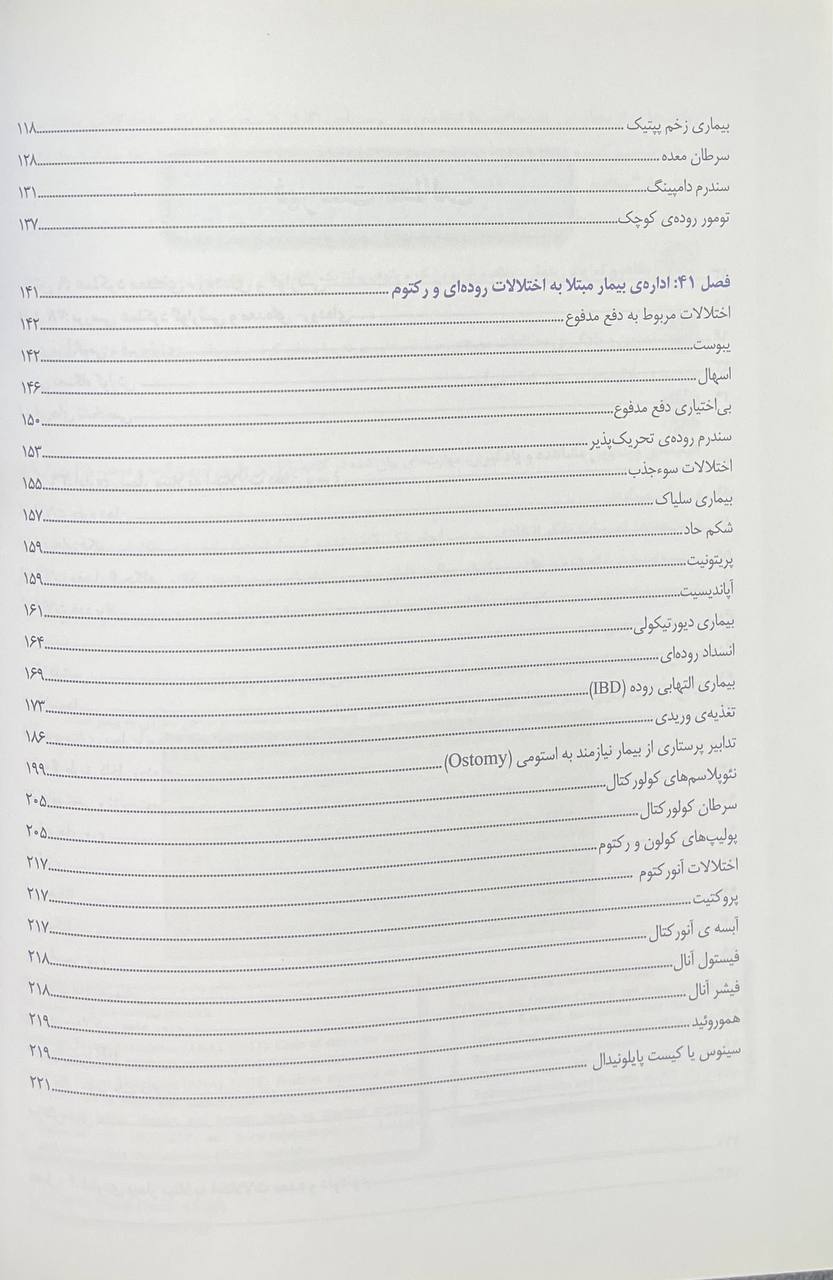 بیماری زخم پپتیک ........ ۱۱۸
سرطان معده ........ ۱۲۸
سندرم دامپینگ ........ ۱۳۱
تومور روده‌ی کوچک ........ ۱۳۷
فصل ۴۱: اداره‌ی بیمار مبتلا به اختلالات روده‌ای و رکتوم ........ ۱۴۱
اختلالات مربوط به دفع مدفوع ........ ۱۴۲
یبوست ........ ۱۴۲
اسهال ........ ۱۴۶
بی‌اختیاری دفع مدفوع ........ ۱۵۰
سندرم روده‌ی تحریک‌پذیر ........ ۱۵۳
اختلالات سوءجذب ........ ۱۵۵
بیماری سلیاک ........ ۱۵۷
شکم حاد ........ ۱۵۹
پریتونیت ........ ۱۵۹
آپاندیسیت ........ ۱۶۱
بیماری دیورتیکولی ........ ۱۶۴
انسداد روده‌ای ........ ۱۶۹
بیماری التهابی روده (IBD) ........ ۱۷۳
تغذیه‌ی وریدی ........ ۱۸۶
تدابیر پرستاری از بیمار نیازمند به استومی (Ostomy) ........ ۱۹۹
نئوپلاسم‌های کولورکتال ........ ۲۰۵
سرطان کولورکتال ........ ۲۰۵
پولیپ‌های کولون و رکتوم ........ ۲۱۷
اختلالات آنورکتوم ........ ۲۱۷
پروکتیت ........ ۲۱۷
آبسه ی آنورکتال ........ ۲۱۸
فیستول آنال ........ ۲۱۸
فیشر آنال ........ ۲۱۹
هموروئید ........ ۲۱۹
سینوس یا کیست پایلونیدال ........ ۲۲۱